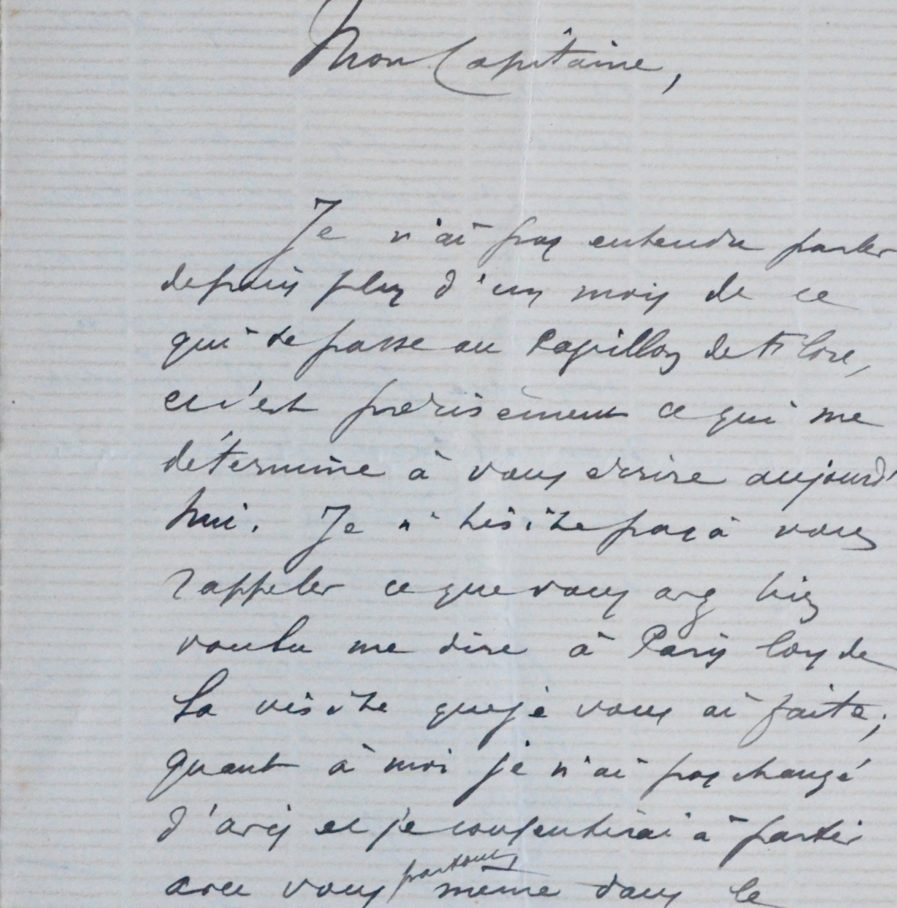 Mon Capitaine,
Je n'ai pas entendu parler
depuis plus d'un mois de ce
qui se passe au Papillon de Flore,
et c'est précisément ce qui me
détermine à vous écrire aujourd'
hui. Je n'hésite pas à vous
rappeler ce que vous avez bien
voulu me dire à Paris lors de
la visite que je vous ai faite;
quant à moi je n'ai pas changé
d'avis et je consentirai à partir
avec vous partout même dans le